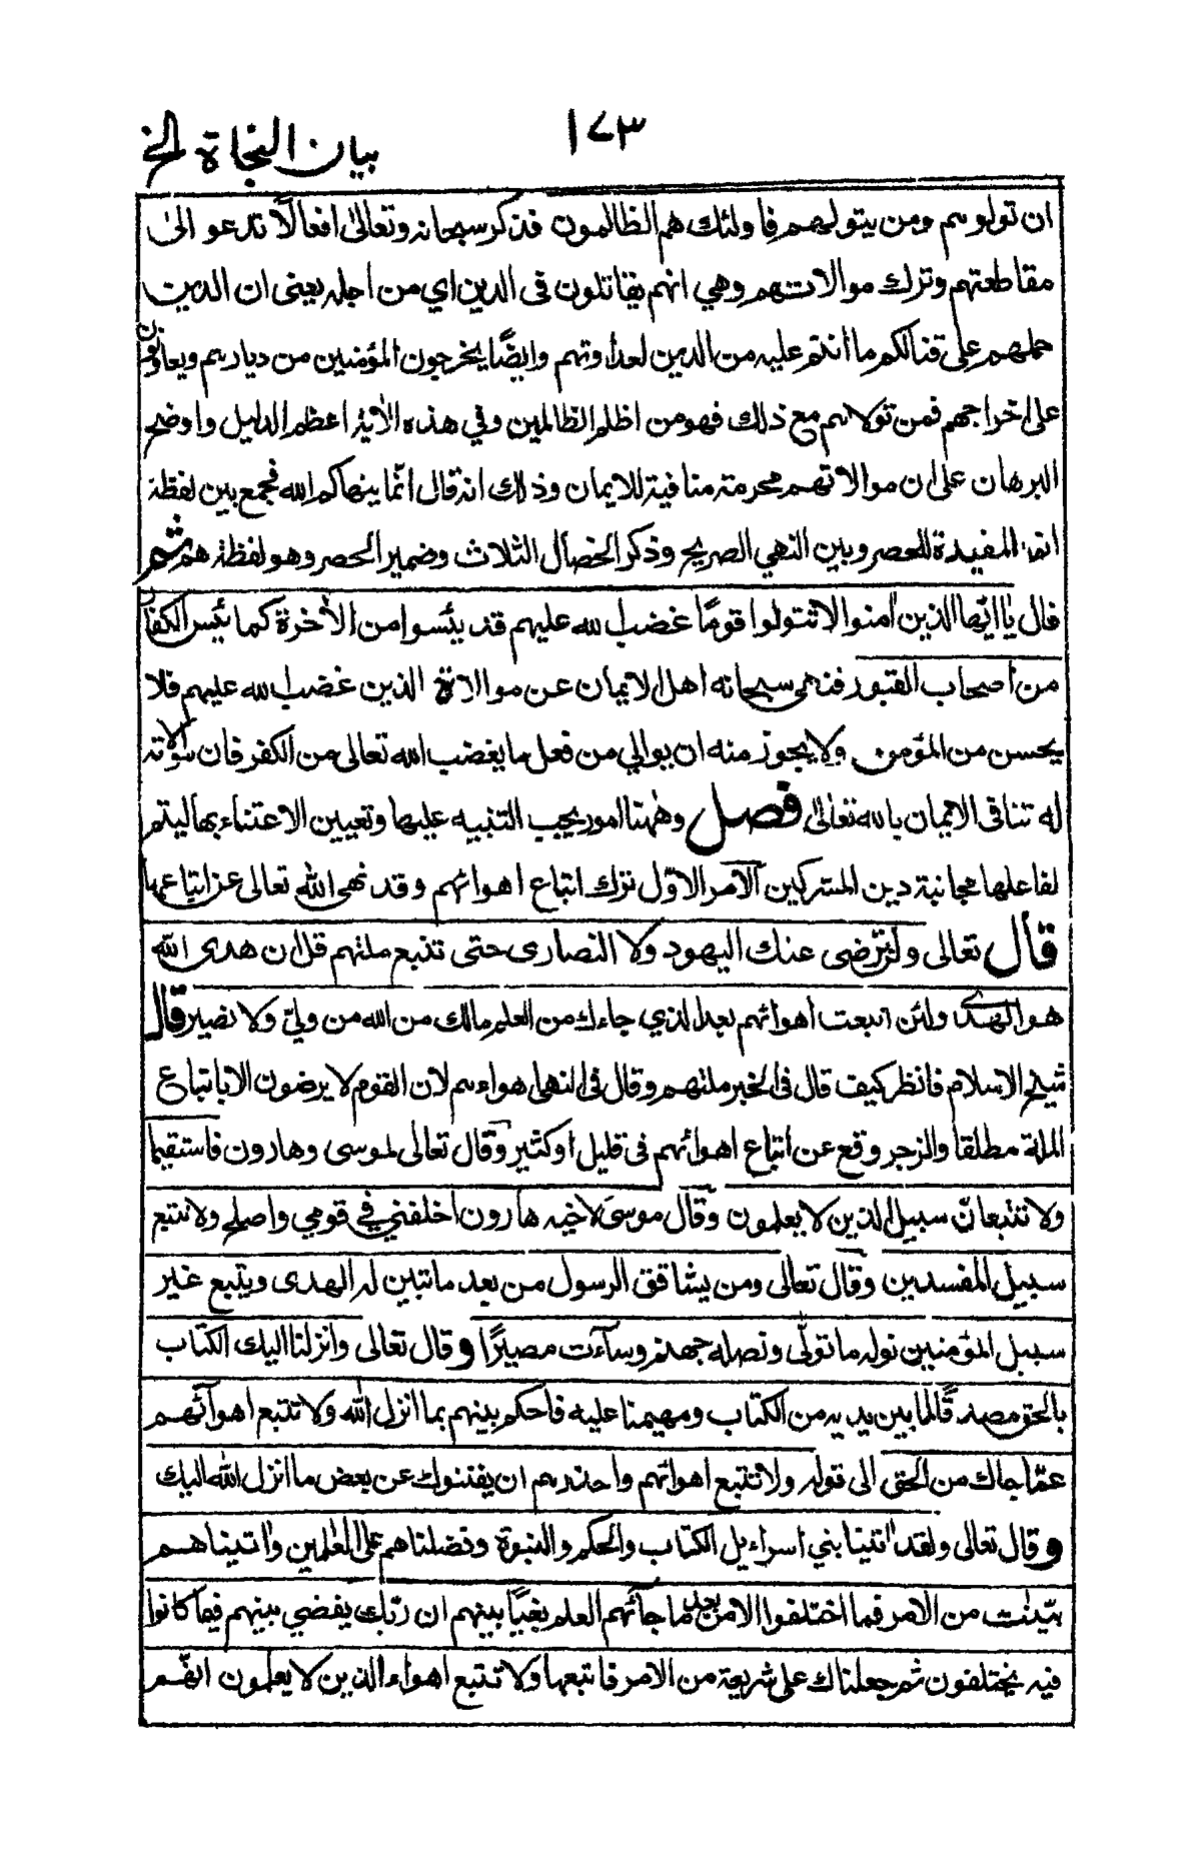 ١٧٣
بيان النجاة الخ
ان تولوهم ومن يتولهم فاولئك هم الظالمون فذكر سبحانه وتعالىٰ افعالًا تدعو الىٰ
مقاطعتهم وترك موالاتهم وهي انهم يقاتلون في الدين اي من اجله يعني ان الذين
حملهم على قتالكم ما انتم عليه من الدين لعداوتهم وايضًا يخرجون المؤمنين من ديارهم ويعاونون
على اخراجهم فمن تولاهم مع ذلك فهو من اظلم الظالمين وفي هذه الاٰية اعظم الدليل واوضح
البرهان على ان موالاتهم محرمة منافية للايمان وذلك انه قال انّما ينهاكم الله فجمع بين لفظة
انما المفيدة للحصر وبين النهي الصريح وذكر الخصال الثلاث وضمير الحصر وهو لفظة هم ثم
قال يٰاايّها الذين اٰمنوا لا تتولوا قومًا غضب الله عليهم قد يئسوا من الاٰخرة كما يئس الكفار
من اصحاب القبور فنهى سبحانه اهل الايمان عن موالاة الذين غضب الله عليهم فلا
يحسن من المؤمن ولا يجوز منه ان يوالي من فعل ما يغضب الله تعالى من الكفر فان موالاته
له تنافي الايمان بالله تعالىٰ فصل وهٰهنا امور يجب التنبيه عليها وتعيين الاعتناء بها ليتم
لفاعلها مجانبة دين المشركين الامر الاوّل ترك اتباع اهوائهم وقد نهى الله تعالى عن اتباعها
قال تعالى ولن ترضى عنك اليهود ولا النصارى حتى تتبع ملتهم قل ان هدى الله
هو الهدى ولئن اتبعت اهوائهم بعد الذي جاءك من العلم مالك من الله من وليّ ولا نصير قال
شيخ الاسلام فانظر كيف قال في الخبر ملتهم وقال في النهى اهواءهم لان القوم لا يرضون الا باتباع
الملة مطلقا والزجر وقع عن اتباع اهوائهم في قليل او كثير وقال تعالى لموسى وهارون فاستقيما
ولا تتبعانّ سبيل الذين لا يعلمون وقال موسىٰ لاخيه هارون اخلفني في قومي واصلح ولا تتبع
سبيل المفسدين وقال تعالى ومن يشاقق الرسول من بعد ما تبين له الهدى ويتبع غير
سبيل المؤمنين نوله ما تولّى ونصله جهنم وساءت مصيرًا وقال تعالى وانزلنا اليك الكتاب
بالحق مصدقًا لما بين يديه من الكتاب ومهيمنا عليه فاحكم بينهم بما انزل الله ولا تتبع اهوآئهم
عمّا جاك من الحق الى قوله ولا تتبع اهوائهم واحذرهم ان يفتنوك عن بعض ما انزل الله اليك
وقال تعالى ولقد اٰتينا بني اسراءيل الكتاب والحكم والنبوة وفضلناهم على العٰلمين واٰتيناهم
بيّنٰت من الامر فما اختلفوا الا من بعد ما جآئهم العلم بغيًا بينهم ان ربّك يقضي بينهم فيما كانوا
فيه يختلفون ثم جعلناك على شريعة من الامر فاتبعها ولا تتبع اهواء الذين لا يعلمون انّهم